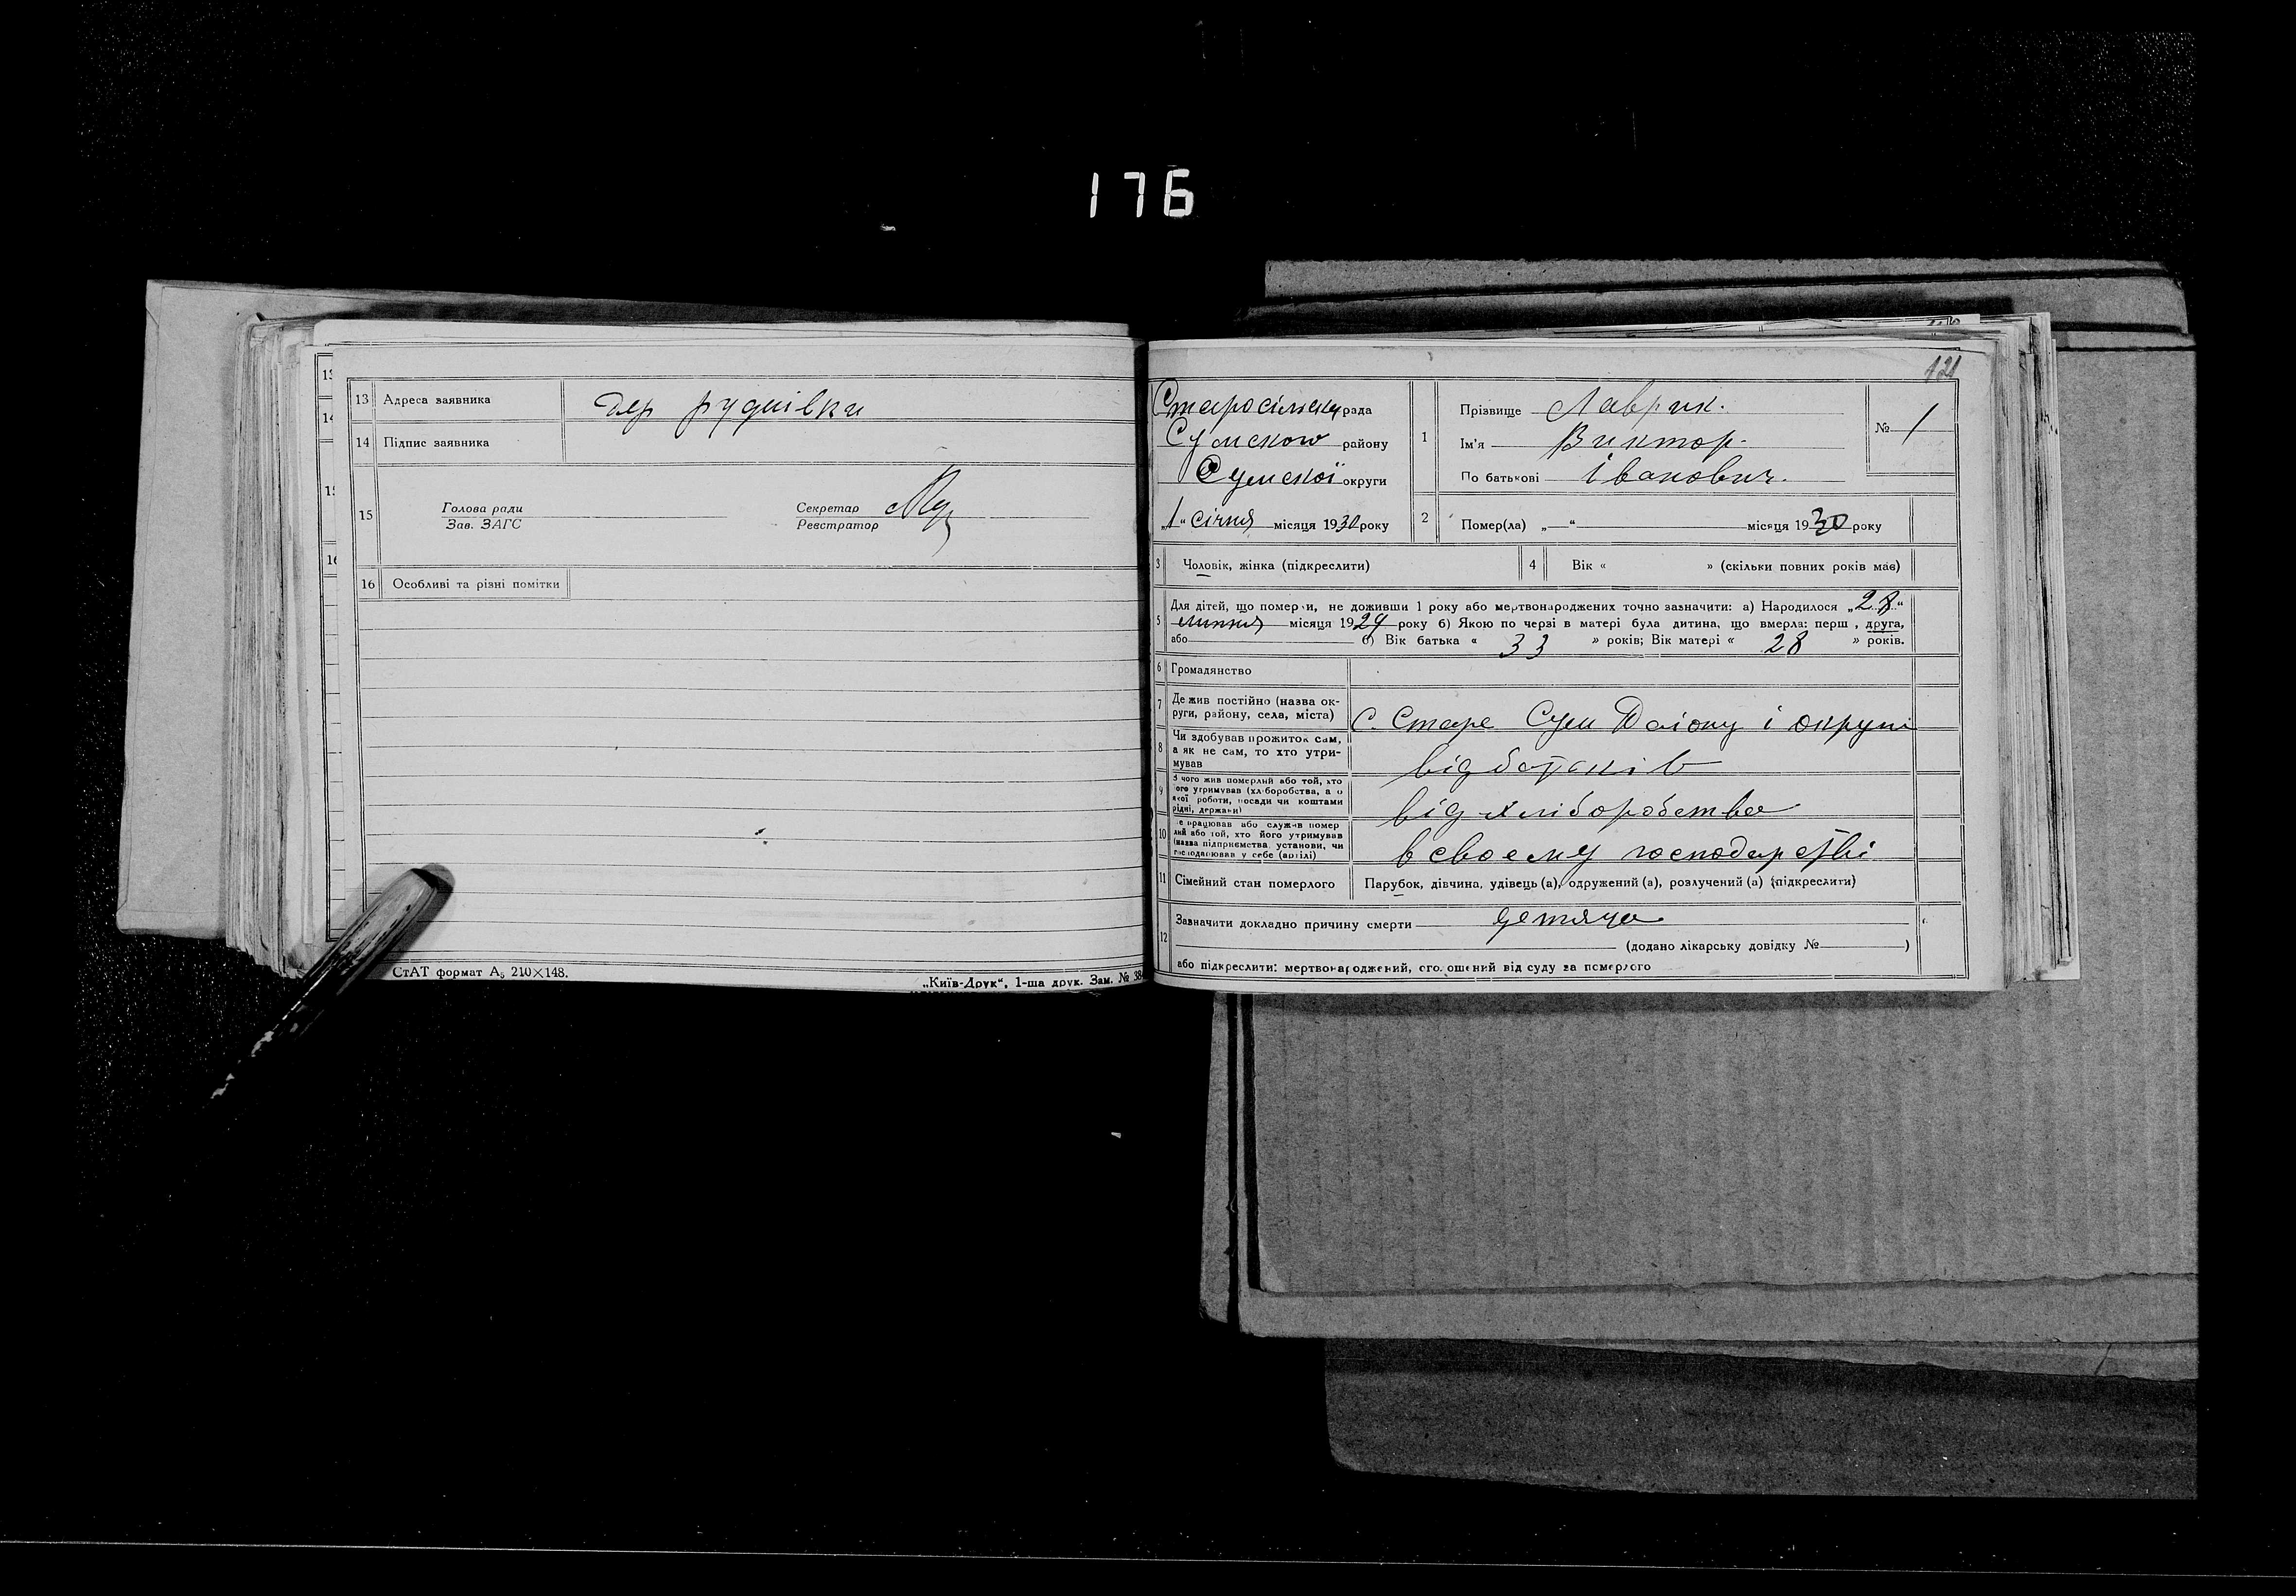 176
13 Адреса заявника дер руднівки
14 Підпис заявника
15 Голова ради
Зав. ЗАГС
Секретар
Реєстратор
16 Особливі та різні помітки
СтАТ формат А₅ 210×148.
„Київ-Друк“, 1-ша друк. Зам. № 38
121
Старосільска рада
Сумского району
Сумскої округи
„1“ січня місяця 1930 року
1 Прізвище Лаврик.
Ім'я Виктор.
По батькові Іванович.
№ 1
2 Помер(ла) „ “ місяця 1930 року
3 Чоловік, жінка (підкреслити)
4 Вік « » (скільки повних років має)
5 Для дітей, що померли, не доживши 1 року або мертвонароджених точно зазначити: а) Народилося „28“
липня місяця 1929 року б) Якою по черзі в матері була дитина, що вмерла: перш , друга,
або в) Вік батька « 33 » років; Вік матері « 28 » років.
6 Громадянство
7 Де жив постійно (назва ок-
руги, району, села, міста) С. Старе Сум Району і округи
8 Чи здобував прожиток сам,
а як не сам, то хто утри-
мував від батьків
9 З чого жив померлий або той, хто
його утримував (хліборобства, а о
якої роботи, посади чи коштами
рідні, держави) від хліборобства
10 Де працював або служив помер
лий або той, хто його утримував
(назва підприємства, установи, чи
господарював у себе (артілі) в своему господарстві
11 Сімейний стан померлого Парубок, дівчина, удівець (а), одружений (а), розлучений (а) (підкреслити)
12 Зазначити докладно причину смерти детяча
(додано лікарську довідку № )
або підкреслити: мертвонароджений, оголошений від суду за померлого